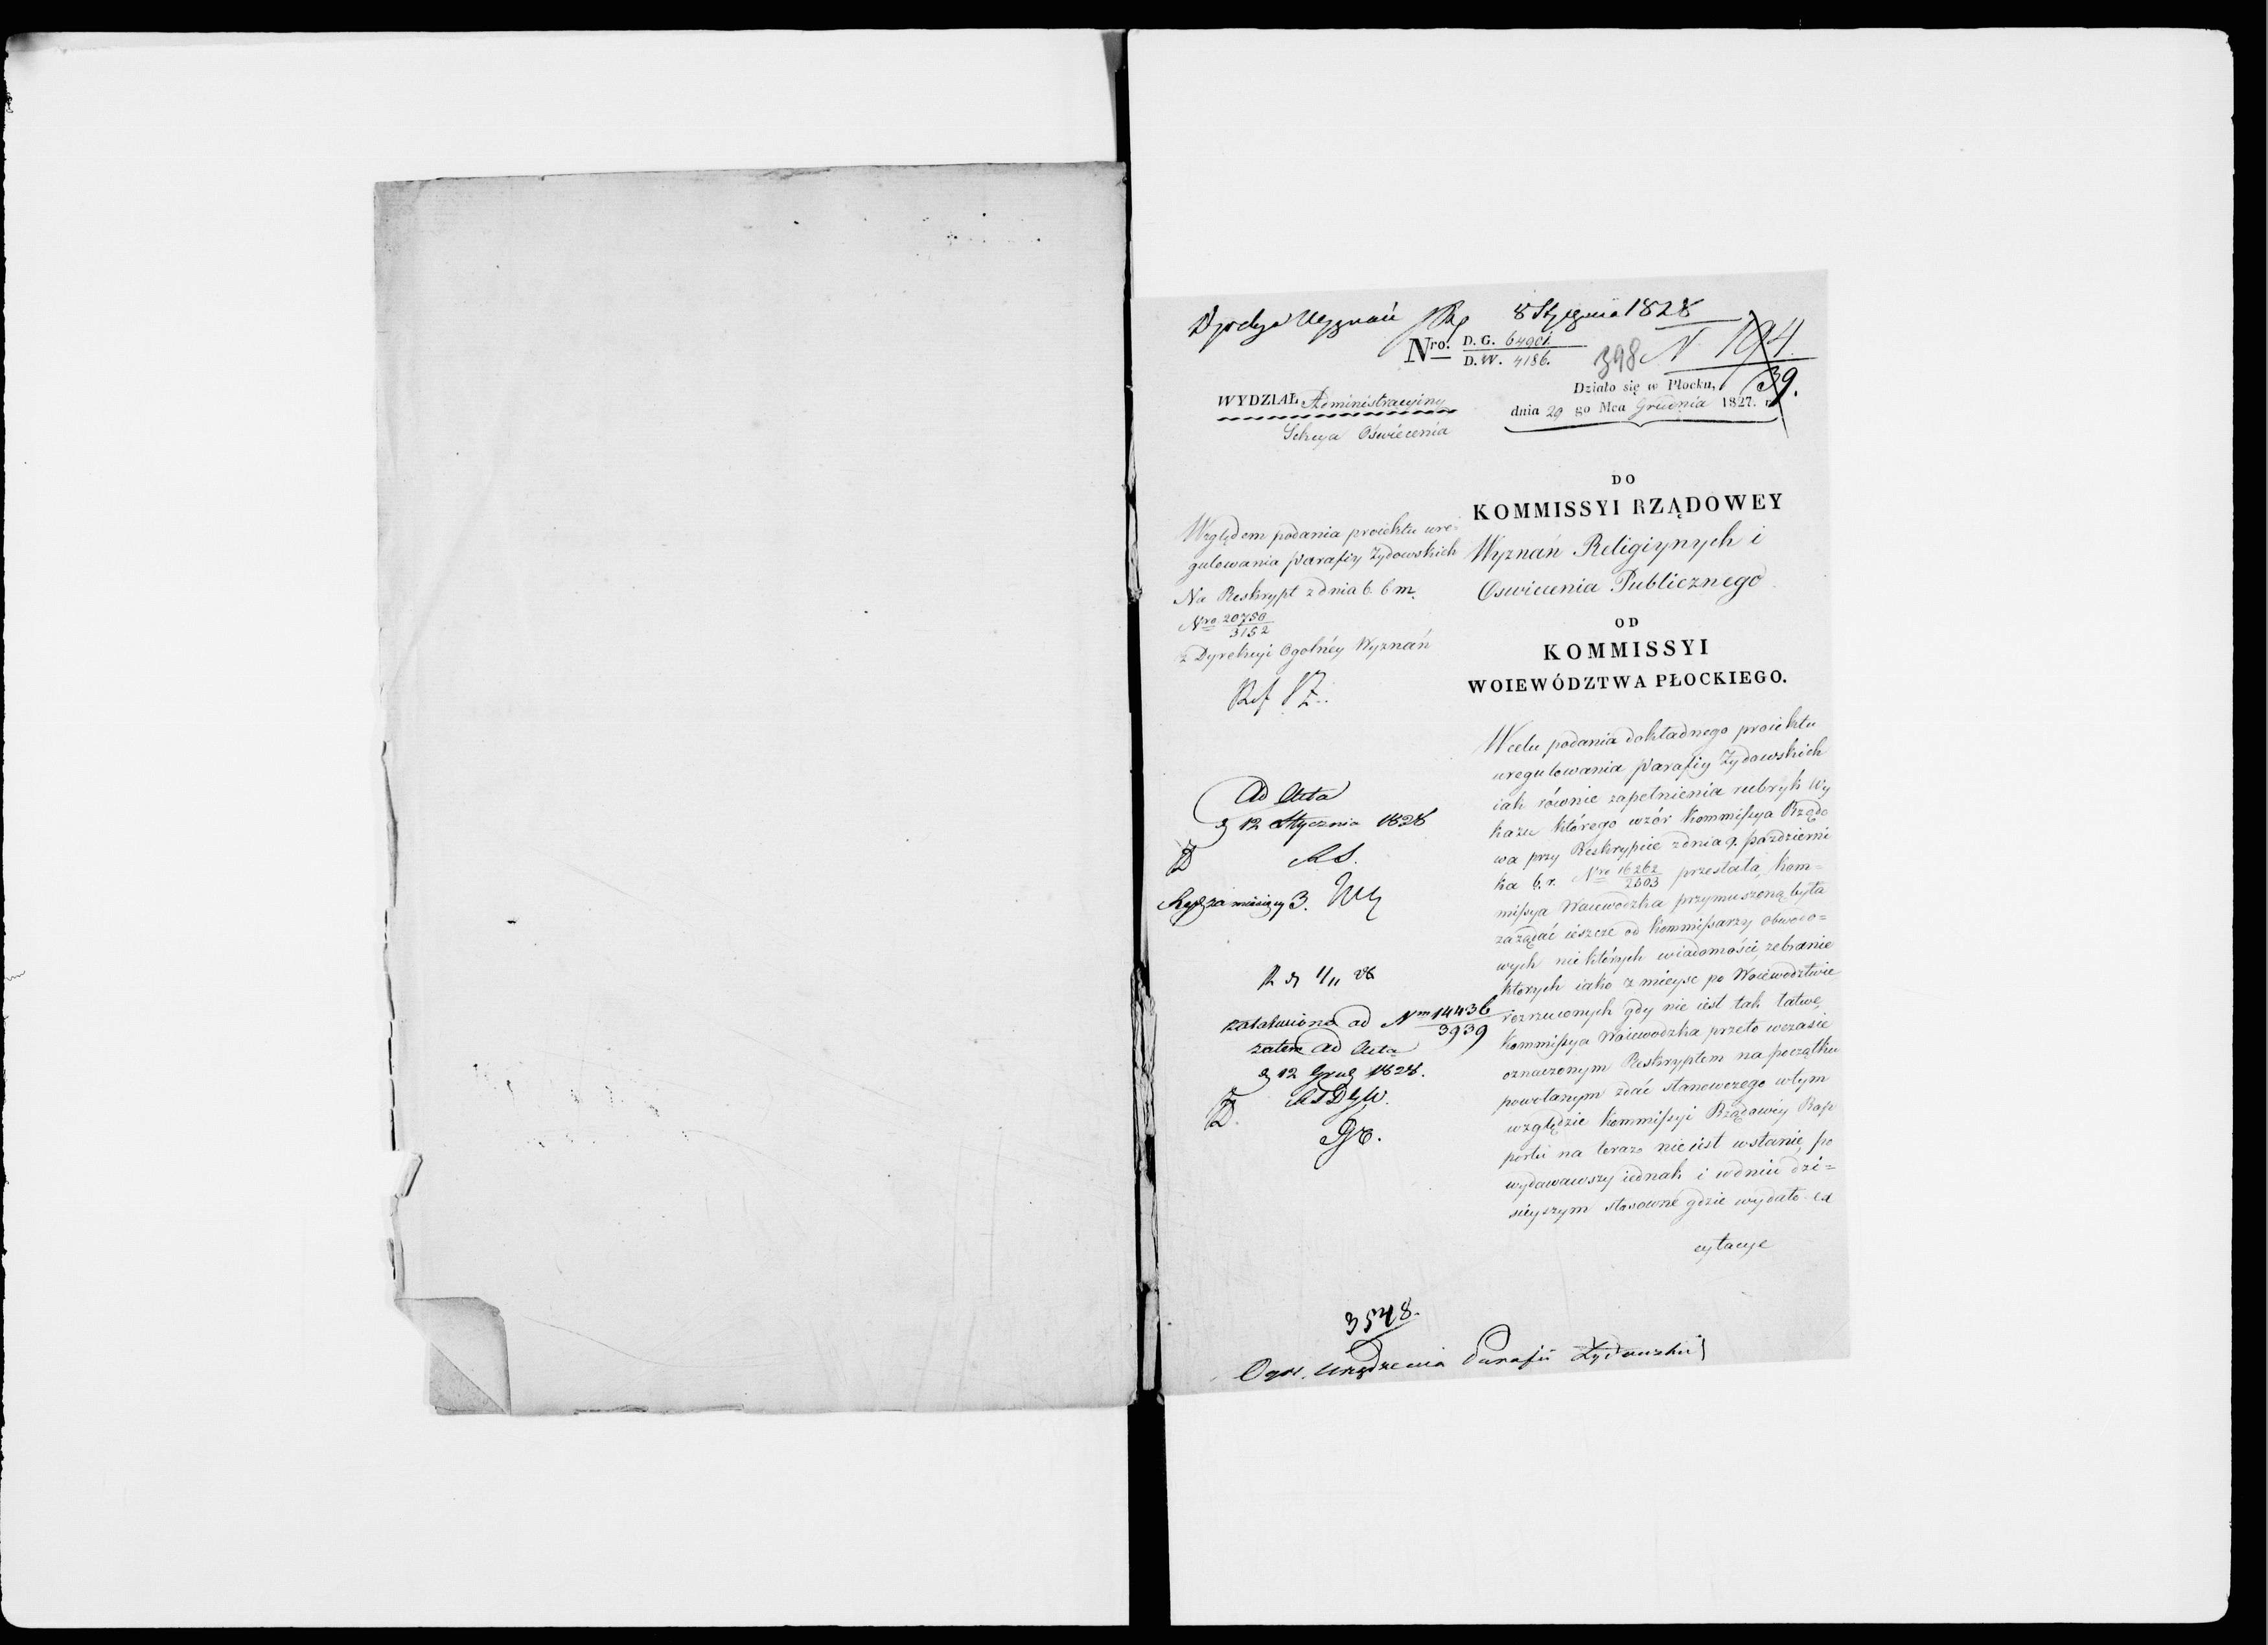 Dyrekcya Wyznań 8 Stycznia 1828
Nro. D. G. 64901.
D. W. 4186.
398 N 194
39.
Działo się w Płocku,
dnia 29 go Mca Grudnia 1827. r.
WYDZIAŁ Administracyiny
Sekcya Oświecenia
DO
KOMMISSYI RZĄDOWEY
Wyznań Religiynych i
Oswiecenia Publicznego
OD
KOMMISSYI
WOIEWÓDZTWA PŁOCKIEGO.
Względem podania proiektu ure=
gulowania Parafiy Żydowskich
Na Reskrypt z dnia 6. b m.
Nro 20750
3152
z Dyrekcyi Ogolnéy Wyznań
Ref
W celu podania dokładnego proiektu
uregulowania Parafiy Żydowskich
iak równie zapełnienia rubryk Wy
kazu którego wzór Kommissya Rządo
wa przy Reskrypcie z dnia 9. pazdzierni
ka b. r. Nro 16262
2503 przesłała, Kom=
missya Woiewodzka przymuszoną była
zażądać ieszcze od Kommissarzy Obwodo=
wych niektórych wiadomości, zebranie
ktorych iako z mieysc po Woiewodztwie
rozrzuconych gdy nie iest tak łatwe,
Kommissya Woiewodzka przeto w czasie
oznaczonym Reskryptem na początku
powołanym zdać stanowczego w tym
względzie Kommissyi Rządowéy Rap
portu na teraz nie iest w stanie, po
wydawawszy iednak i w dniu dzi=
sieyszym stosowne gdzie wydało ex
cytacye
Ad Acta
d 12 Stycznia 1828
za miesięcy 3.
załatwiono ad Nrm 14436
3939
zatem ad Acta
d 12 Grud 1828.
3548.
Ogól. urządzenia Parafii Żydowskiej